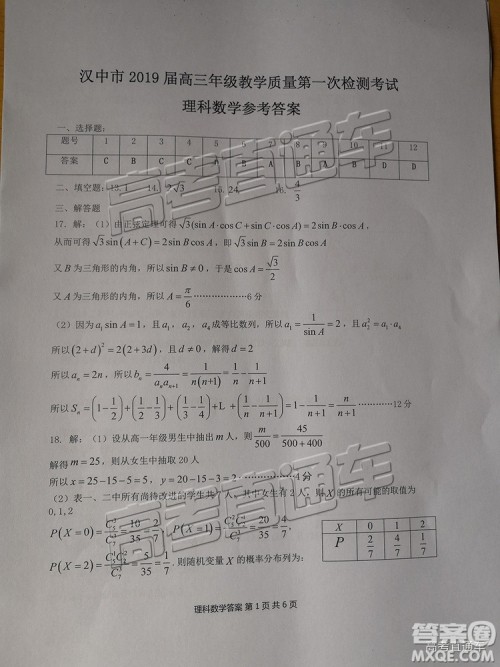 汉中市 2019 届高三年级教学质量第一次检测考试
理科数学参考答案
一、选择题:
题号 1 2 3 4 5 11 12
答案 C B C C A B D D
二、填空题: 13. 1 14. 2√3 15. 24 4/3
三、解答题
17. 解:(1)由正弦定理可得 √3(sin A·cosC+sinC·cos A)=2sin B·cos A,
从而可得 √3 sin(A+C)=2sin B cos A, 即 √3 sin B=2sin B cos A
又 B 为三角形的内角,所以 sin B≠0,于是 cos A=√3/2
又 A 为三角形内角,所以 A=π/6 ··············6分
(2)因为 a₁ sin A=1,且 a₁, a₄, a₈ 成等比数列,所以 a₁=1/sin A=2,且 a₄²=a₂·a₈
所以 (2+d)²=2(2+3d),且 d≠0,解得 d=2
所以 aₙ=2n, 所以 bₙ=4/(aₙaₙ₊₁)=1/(n(n+1))=1/n-1/(n+1)
所以 Sₙ=(1-1/2)+(1/2-1/3)+(1/3-1/4)+L+(1/n-1/(n+1))=1-1/(n+1)=n/(n+1) ············12分
18. 解:(1)设从高一年级男生中抽出 m 人,则 m/500=45/(500+400)
解得 m=25,则从女生中抽取 20 人
所以 x=25-15-5=5, y=20-15-3=2 4分
(2)表一、二中所有尚待改进的学生共 7 人,其中女生有 2 人,则 X 所有可能的取值为
0,1,2
P(X=0)=10/35=2/7, P(X=1)=20/35=4/7,
P(X=2)=5/35=1/7, 则随机变量 X 的概率分布列为:
X 0 1 2
P 2/7 4/7 1/7
理科数学答案 第 1 页 共 6 页
高考直通车
高考直通车
高考直通车
答案圈
MXQE.COM